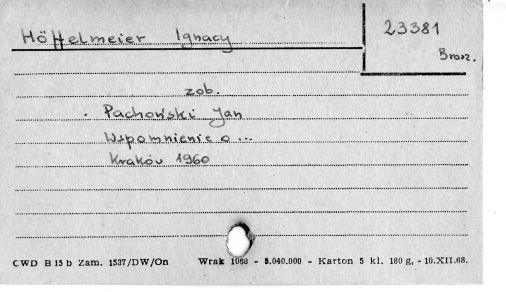 Höffelmeier Ignacy
23381
Brosz.
zob.
Pachoński Jan
Wspomnienie o ...
Kraków 1960
CWD B 15 b Zam. 1537/DW/On Wrak 1068 - 5.040.000 - Karton 5 kl. 180 g, - 10.XII.68.